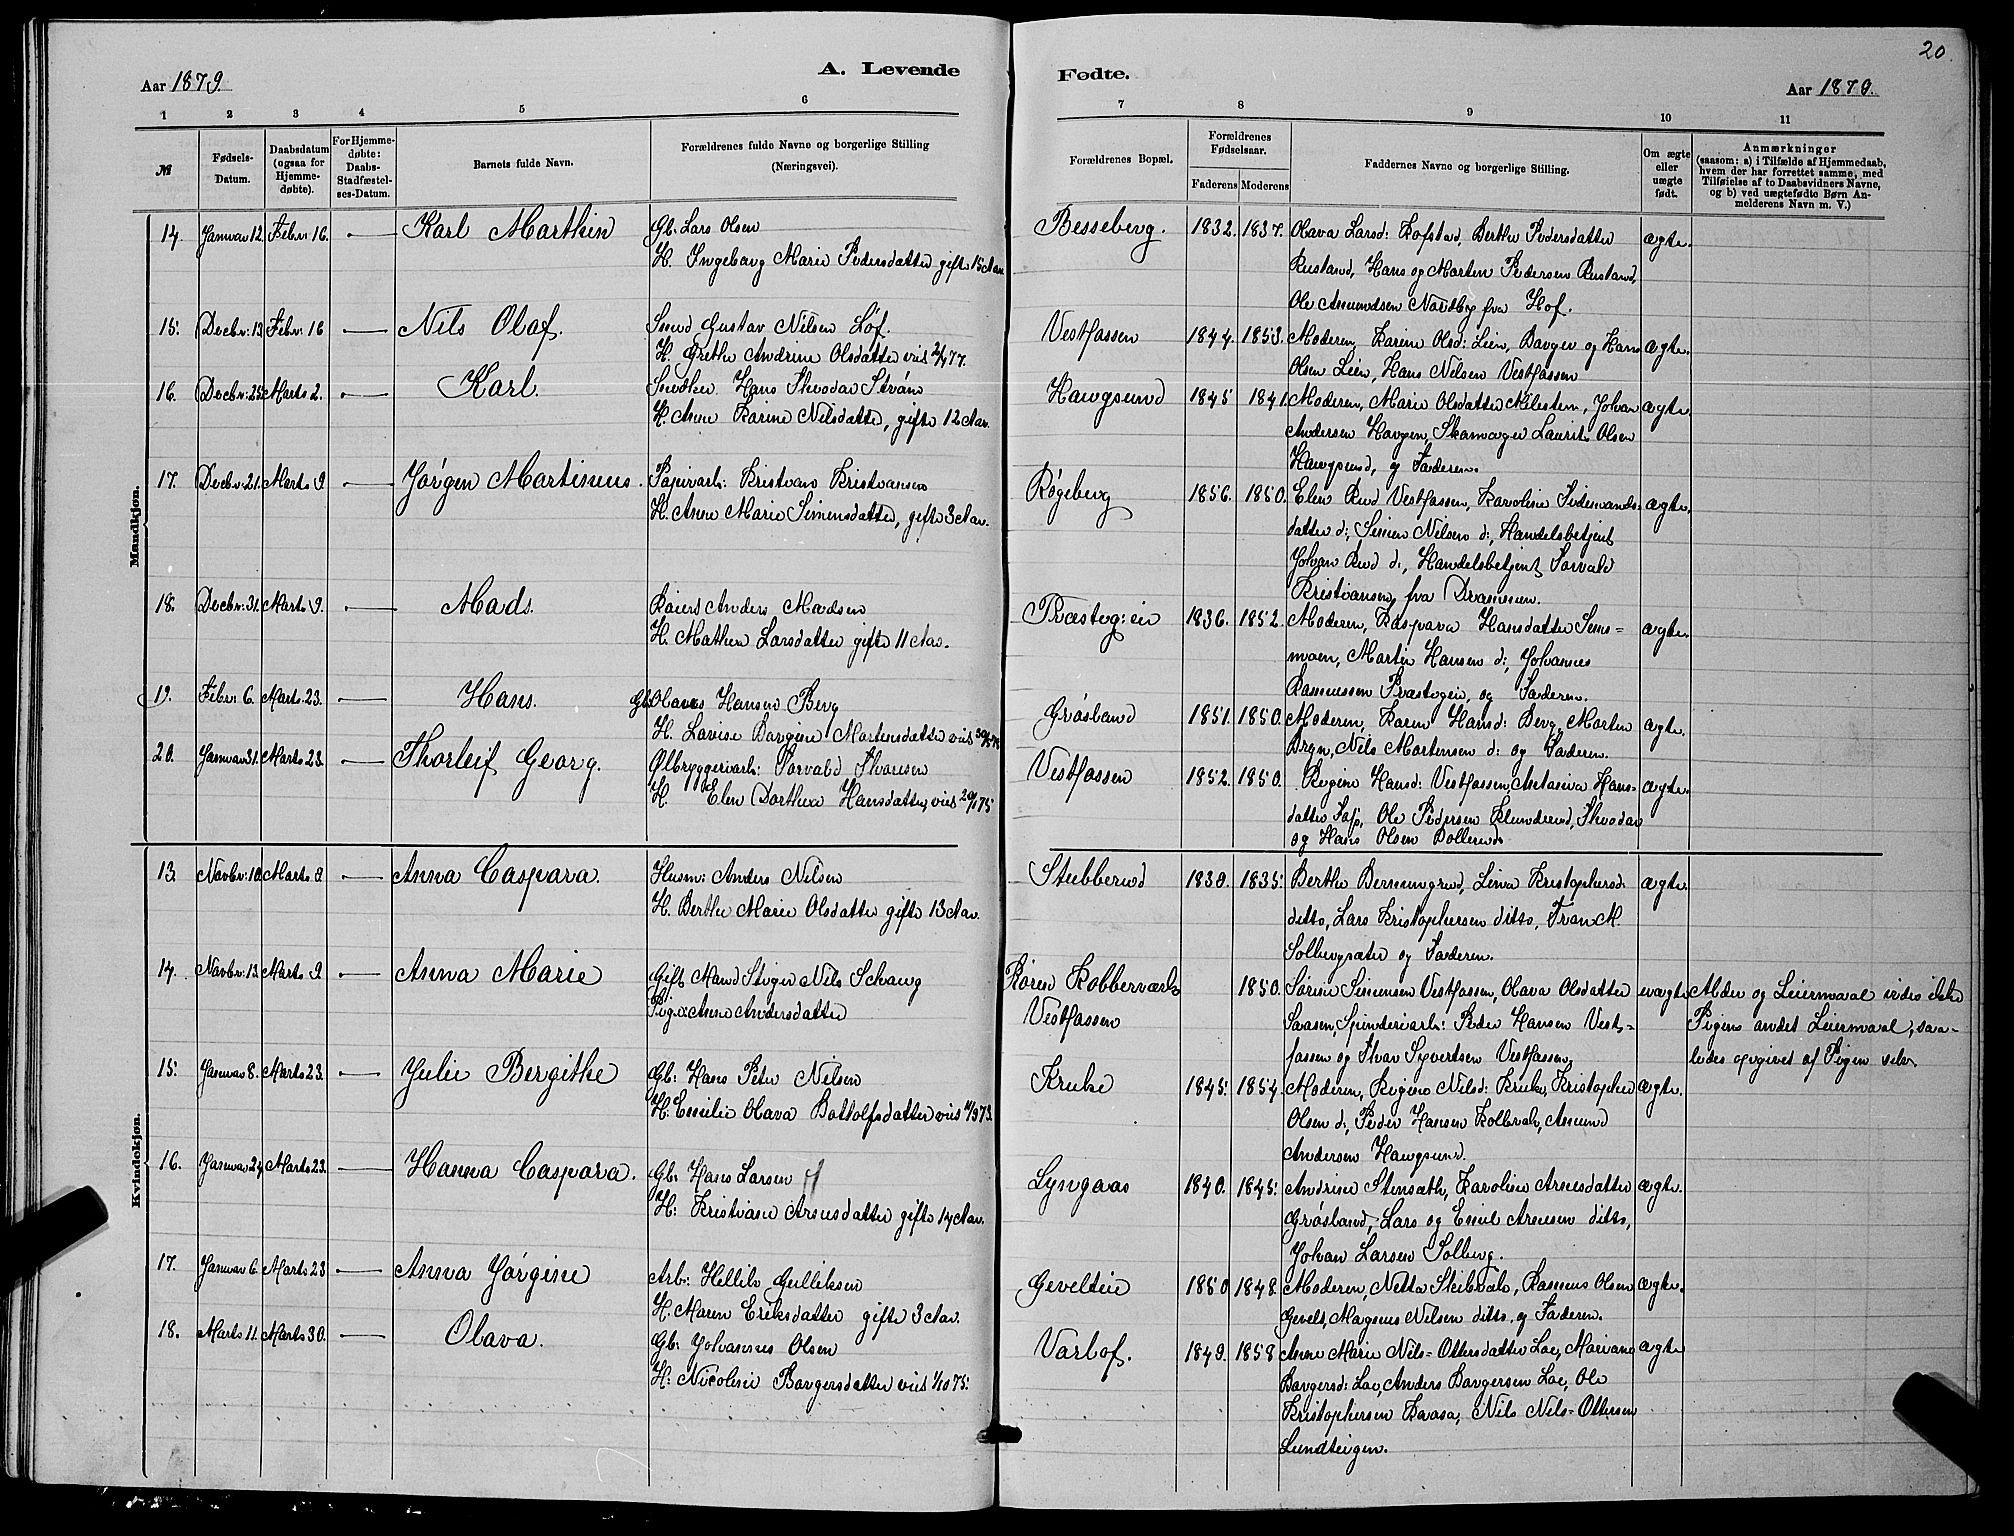 20.
A. Levende
Fødte.
Aar 1879.
Aar 1879.
1 2 3 4 5 6
7 8 9 10 11
№
Fødsels-Datum.
Daabsdatum (ogsaa for Hjemme-døbte).
For Hjemme-døbte: Daabs-Stadfæstel-ses-Datum.
Barnets fulde Navn.
Forældrenes fulde Navne og borgerlige Stilling (Næringsvei).
Forældrenes Bopæl.
Forældrenes Fødselsaar.
Faderens Moderens
Faddernes Navne og borgerlige Stilling.
Om ægte eller uægte født.
Anmærkninger
(saasom: a) i Tilfælde af Hjemmedaab, hvem der har forrettet samme, med Tilføielse af to Daabsvidners Navne, og b) ved uægtefødte Børn Anmelderens Navn m. V.)
Mandkjøn.
14. Januar 12. Febr: 16. Karl Marthin Gb. Lars Olsen
H. Ingeborg Marie Pedersdatter gifte 15 Aar
Besseberg. 1832. 1837. Olava Larsd: Kofstad, Berthe Pedersdatter ægte.
Rustand, Hans og Morten Pedersen Rustand,
Ole Amundsen Nordby fra Hof.
15. Decbr: 13. Febr: 16 Nils Olaf. Smed Gustav Nilsen Løf.
H. Grethe Andrine Olsdatter vied 77.
Vestfossen 1844. 1853. Moderen, Karine Olsd: Lien, Borger og Hans ægte.
Olsen Lien, Hans Nilsen Vestfossen
16. Decbr: 25. Marts 2. Karl. Snedker Hans Thvodor Strøm
H. Anne Karine Nilsdatter, gifte 12 Aar.
Haugsund 1845 1841. Moderen, Marie Olsdatter Milesten, Johan ægte.
Andersen Haugen, Skomager Laurits Olsen
Haugsund, og Faderen.
17. Decbr: 21. Marts 9 Jørgen Martinius. Papirarb: Kristian Kristiansen
H. Anne Marie Simensdatter, gifte 3 Aar.
Røgeberg 1856. 1850. Elen Rud Vestfossen, Karoline ægte.
datter d:, Simen Nilsen d:, Handelsbetjent
Johan Rud d:, Handelsbetjent Torvald
Kristiansen fra Drammen.
18. Decbr: 31. Marts 9. Mads. Røiert Anders Madsen
H. Mathea Larsdatter gifte 11 Aar.
Præsteg:eie 1836. 1852. Moderen, Kaspara Hansdatter Sems= ægte.
moen, Martin Hansen d:, Johannes
Rasmussen Præstegeie, og Faderen.
19. Febr: 6. Marts 23. Hans. Gb. Olaves Hansen Berg
H. Lovise Borgine Mortensdatter vied
Grøsland 1851. 1850. Moderen, Karen Hansd: Berg, Morten ægte.
Bryn, Nils Mortensen d: og Faderen.
20. Januar 31. Marts 23. Thorleif Georg. Ølbryggerarb: Torvald Thoresen
H. Elen Dorthea Hansdatter, vied 75
Vestfossen 1852. 1850. Regine Hansd: Vestfossen, Antasiva Hans= ægte.
datter Fos, Ole Pedersen Klunderud, Thvodor
og Hans Olsen Bollerud.
Kvindekjøn.
13. Novbr: 10. Marts 9. Anna Caspara. Husm: Anders Nilsen
H. Berthe Marie Olsdatter gifte 13 Aar.
Stubberud 1830. 1835. Berthe Berningrud, Lina Kristophersd: ægte.
ditto, Lars Kristophersen ditto, Fran M.
Solbergsæter og Faderen.
14. Novbr: 13. Marts 9 Anna Marie Gift Mand Stiger Nils Schaug
Pige Anne Andersdatter
Køren Kobberværk
Vestfossen 1850. Sørine Simensen Vestfossen, Olava Olsdatter uægte
Saasen, Spinderiarb: Peder Hansen Vest=
fossen og Ihvar Syvertsen Vestfossen.
Alder og Leiermaal vides ikke
Pigens andet Leiermaal, saa=
ledes opgivet af Pigen selv.
15. Januar 8. Marts 23. Julie Bergithe Gb: Hans Peter Nilsen
H: Emilie Olava Bottolfsdatter vied 11/9 73.
Kruke 1845. 1854. Moderen, Regine Nilsd: Kruke, Kristopher ægte.
Olsen d:, Peder Hansen Kolbræk, Amund
Andersen Haugsund.
16. Januar 24. Marts 23. Hanna Caspara. Gb: Hans Larsen
H: Kristiane Arnesdatter gifte 14 Aar.
Lyngaas 1840. 1845. Andrine Stensæth, Karoline Arnesdatter ægte.
Grøsland, Lars og Emil Arnesen ditto,
Johan Larsen Solberg.
17. Januar 6. Marts 23 Anna Jørgine Arb: Hellik Gulliksen
H. Maren Eriksdatter gifte 3 Aar.
Gevelteie 1850 1848. Moderen, Netta Skibvak, Rasmus Olsen ægte.
Gevelt, Magnus Nilsen ditto, og Faderen.
18. Marts 11. Marts 30. Olava. Gb: Johannes Olsen
H: Nicoline Borgersdatter vied 1/10 75.
Varlof. 1849. 1858 Anne Marie Nils=Ottersdatter Loe, Mariane ægte
Borgersd: Loe, Anders Borgersen Loe, Ole
Kristophersen Kaasa, Nils Nils=Ottersen
Lundteigen.